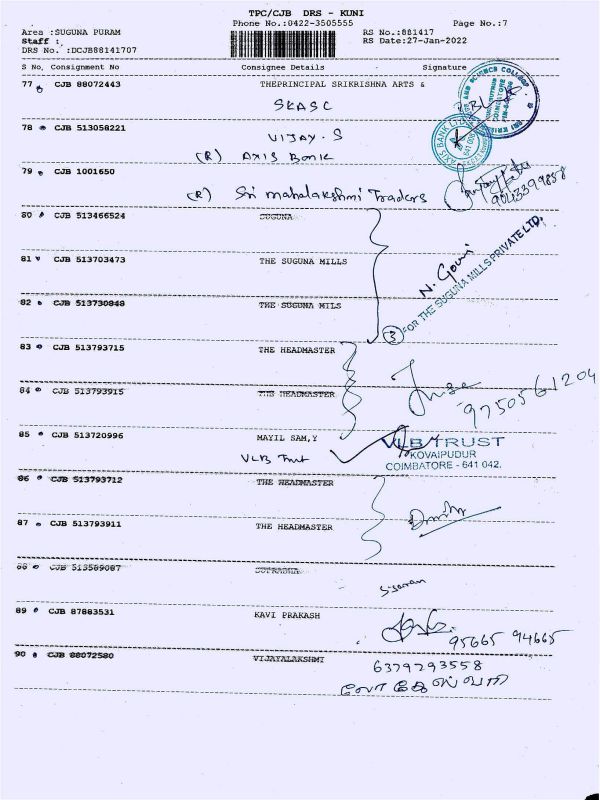 TPC/CJB DRS - KUNI
Phone No.:0422-3505555 Page No.:7
Area :SUGUNA PURAM RS No.:881417
Staff : RS Date:27-Jan-2022
DRS No. :DCJB88141707
S No. Consignment No Consignee Details Signature
77 CJB 88072443 THEPRINCIPAL SRIKRISHNA ARTS &
SKASC
AND SCIENCE COLLEGE
COIMBATORE
78 CJB 513058221 VIJAY. S
(R) AXIS Bank
AXIS BANK LTD
79 CJB 1001650
(R) Sri mahalakshmi Traders
9043399858
80 CJB 513466524 SUGUNA
81 CJB 513703473 THE SUGUNA MILLS
N. Gowri
82 CJB 513730848 THE SUGUNA MILS
3 FOR THE SUGUNA MILLS PRIVATE LTD.
83 CJB 513793715 THE HEADMASTER
84 CJB 513793915 THE HEADMASTER
9750561204
85 CJB 513720996 MAYIL SAM,Y
VLB Trust
VLB TRUST
KOVAIPUDUR
COIMBATORE - 641 042.
86 CJB 513793712 THE HEADMASTER
87 CJB 513793911 THE HEADMASTER
88 CJB 513589087
89 CJB 87883531 KAVI PRAKASH
95665 94665
90 CJB 88072580 VIJAYALAKSHMI
6379793558
லோகேஸ்வரி